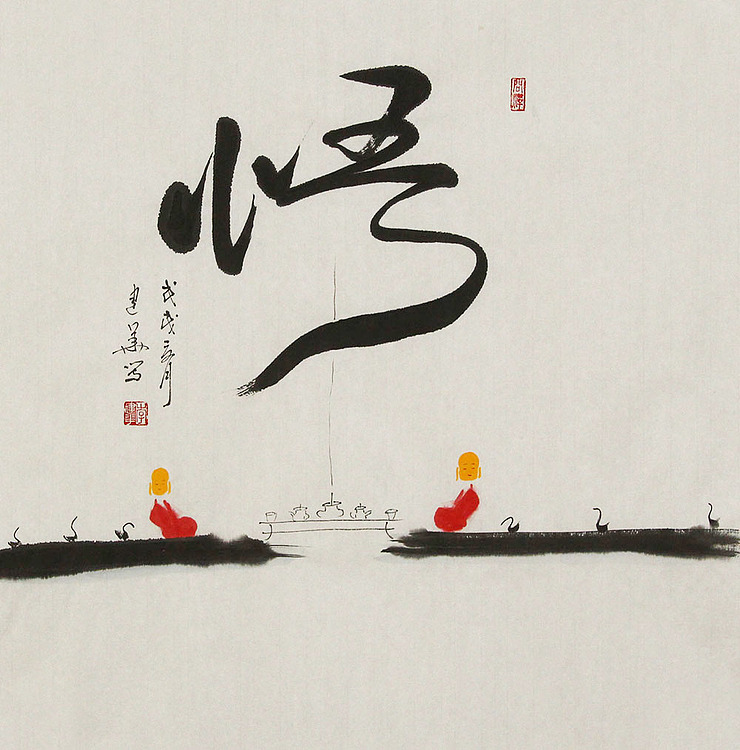 悟
戊戌三月
建華写